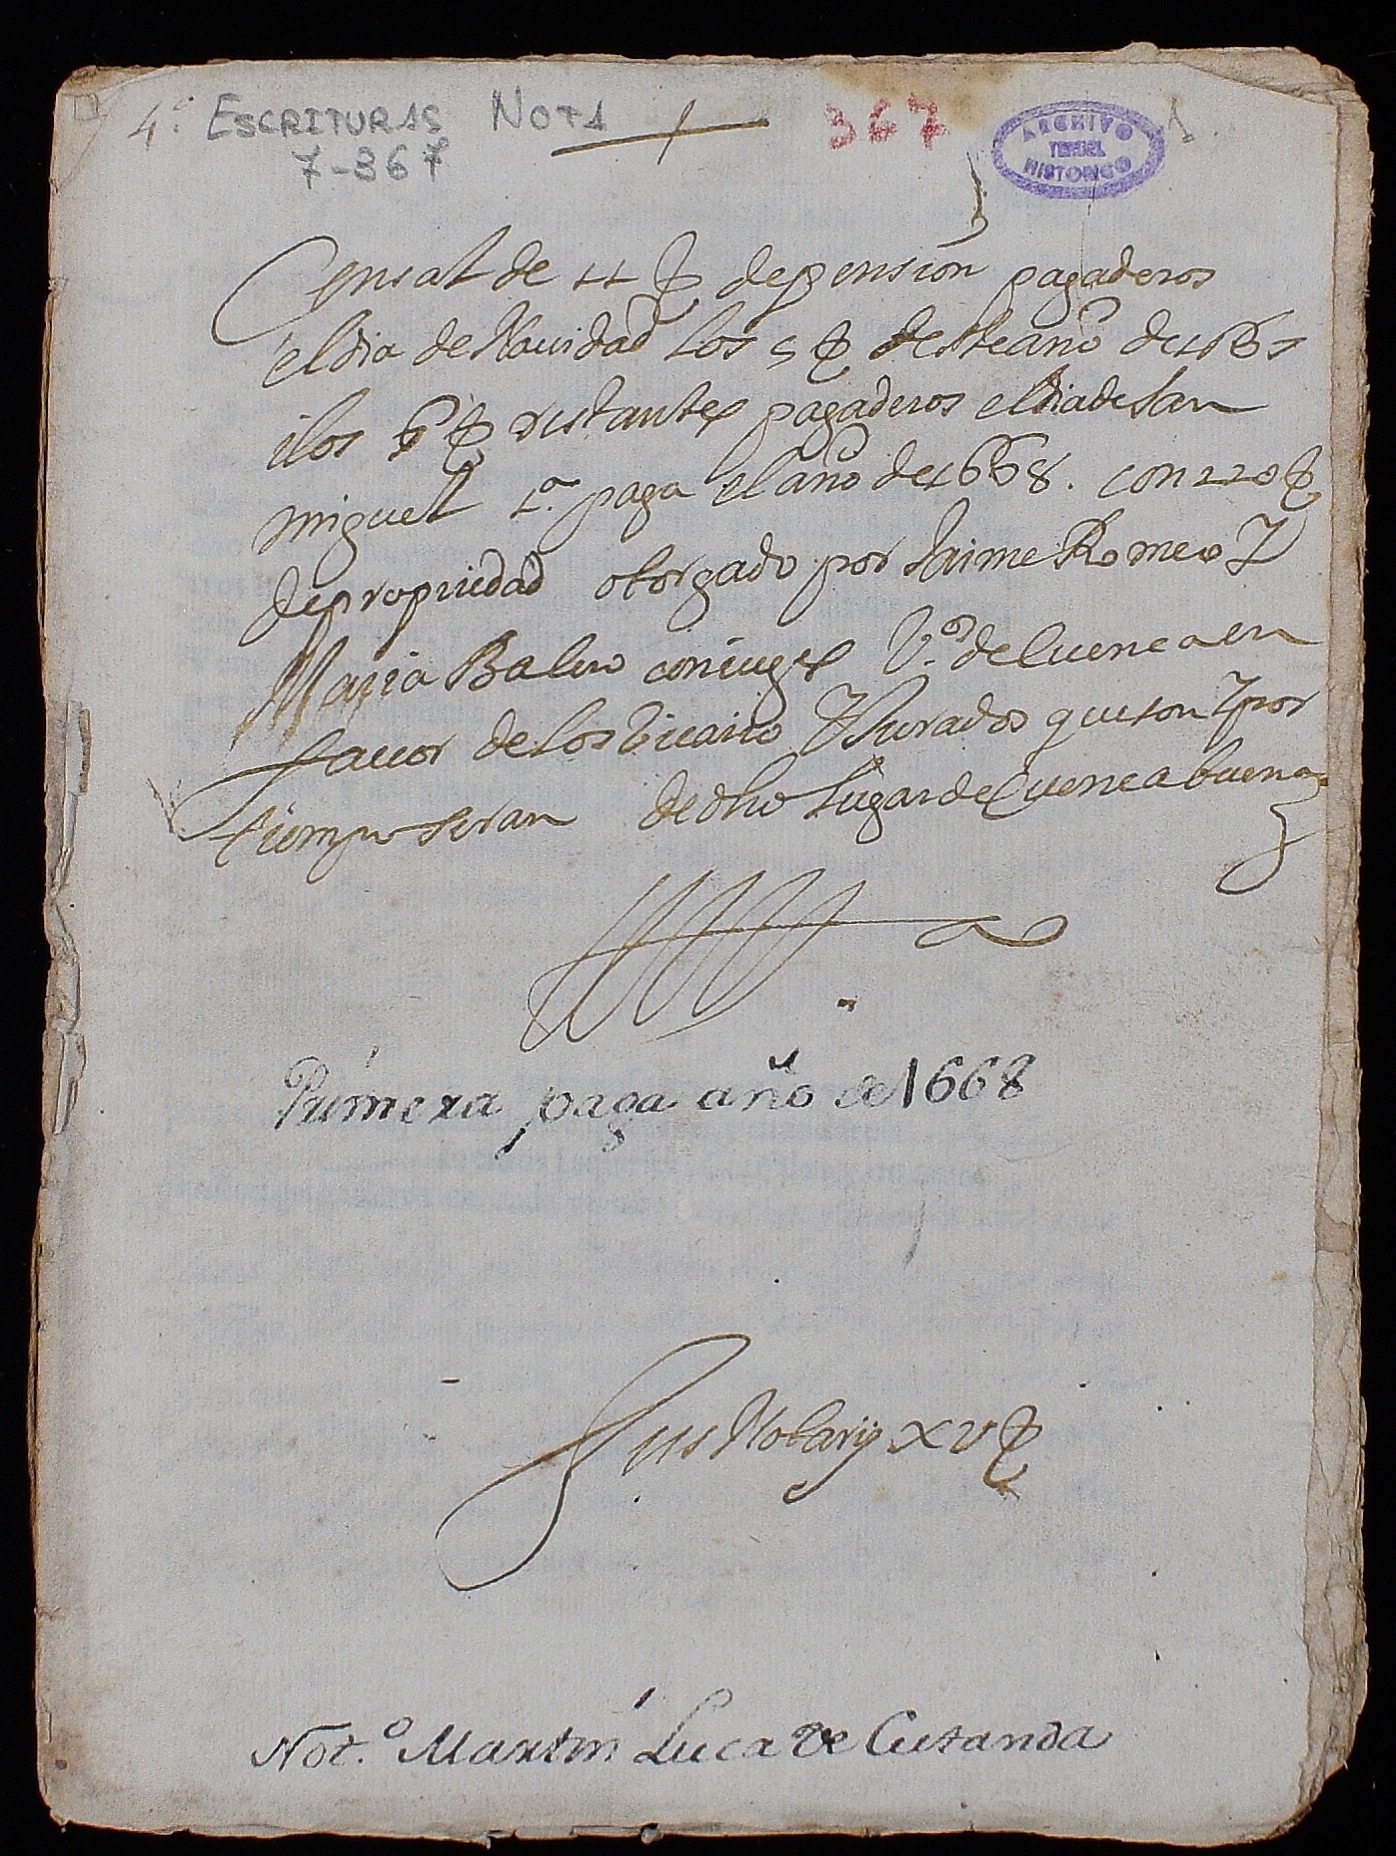 4º ESCRITURAS NOTA
7-367
367
ARCHIVO
TERUEL
HISTORICO
1.
Censal de 11 ₷ de pension pagaderos
el dia de Nauidad los 5 ₷ deste año de 1667
i los 6 ₷ restantes pagaderos el dia de san
miguel 1.ª paga el año de 1668. con 220 ₷
de propriedad otorgado por Jaime Romeo Y
Maria Balero coniuges V.os de Cuenca en
fauor de los Vicario Y Jurados que son Y por
tiempo seran de dho lugar de Cuencabuena
Primera paga año de 1668
Jus Notarij XV ₷
Not.º Martin Luca de Cutanda